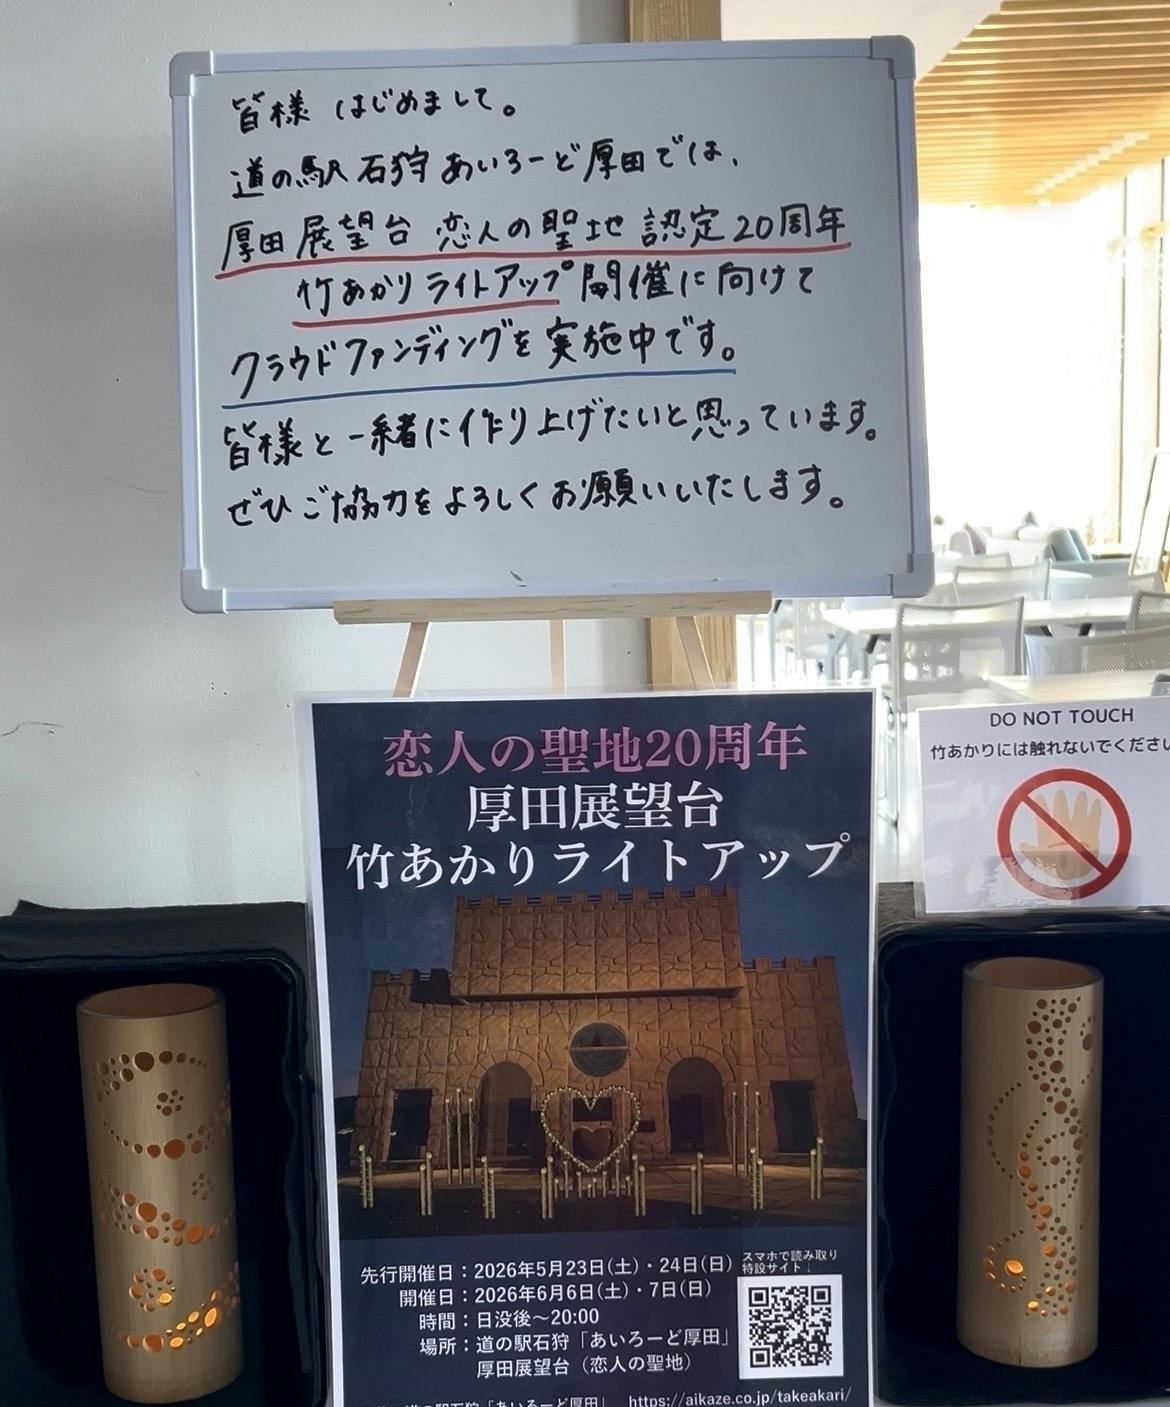 皆様 はじめまして。
道の駅石狩 あいろーど厚田では、
厚田展望台 恋人の聖地 認定20周年
竹あかりライトアップ 開催に向けて
クラウドファンディングを実施中です。
皆様と一緒に作り上げたいと思っています。
ぜひご協力をよろしくお願いいたします。
恋人の聖地20周年
厚田展望台
竹あかりライトアップ
先行開催日：2026年5月23日(土)・24日(日)
開催日：2026年6月6日(土)・7日(日)
時間：日没後～20:00
場所：道の駅石狩「あいろーど厚田」
厚田展望台（恋人の聖地）
スマホで読み取り
特設サイト↓
道の駅石狩「あいろーど厚田」 https://aikaze.co.jp/takeakari/
DO NOT TOUCH
竹あかりには触れないでください